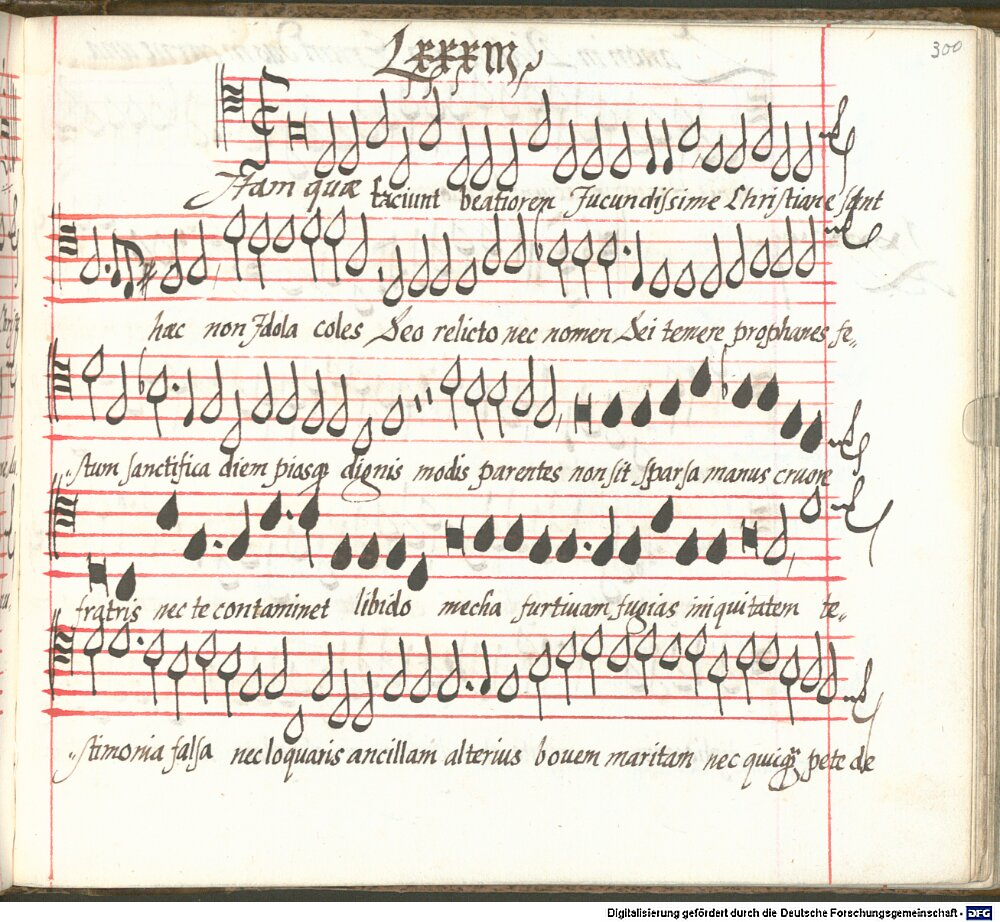 Lxxxiii
300
Vitam quæ faciunt beatiorem Jucundissime Christiane sunt
hæc non Idola coles Deo relicto nec nomen Dei temere prophanes fe„
„stum sanctifica diem piasq dignis modis parentes non sit sparsa manus cruore
fratris nec te contaminet libido mecha furtivam fugias iniquitatem te„
„stimonia falsa nec loquaris ancillam alterius bovem maritam nec quicq pete de
Digitalisierung gefördert durch die Deutsche Forschungsgemeinschaft - DFG